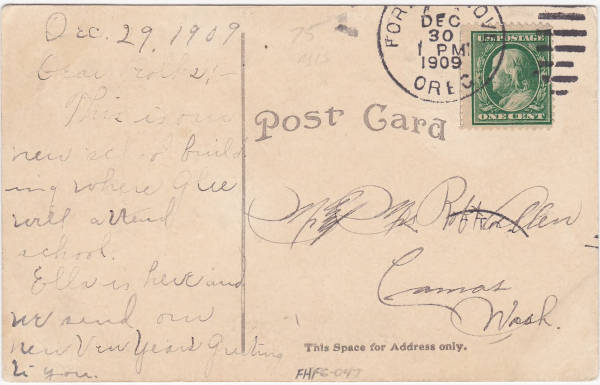 Dec. 29, 1909
Dear Folks:-
This is our
new school build
ing where Glee
will attend
school.
Ella is here and
we send our
new New Years Greeting
to you.
75
DEC
30
1 PM
1909
OREG.
U.S. POSTAGE
ONE CENT
Post Card
Mr & Mrs Robt
Camas
Wash.
This Space for Address only.